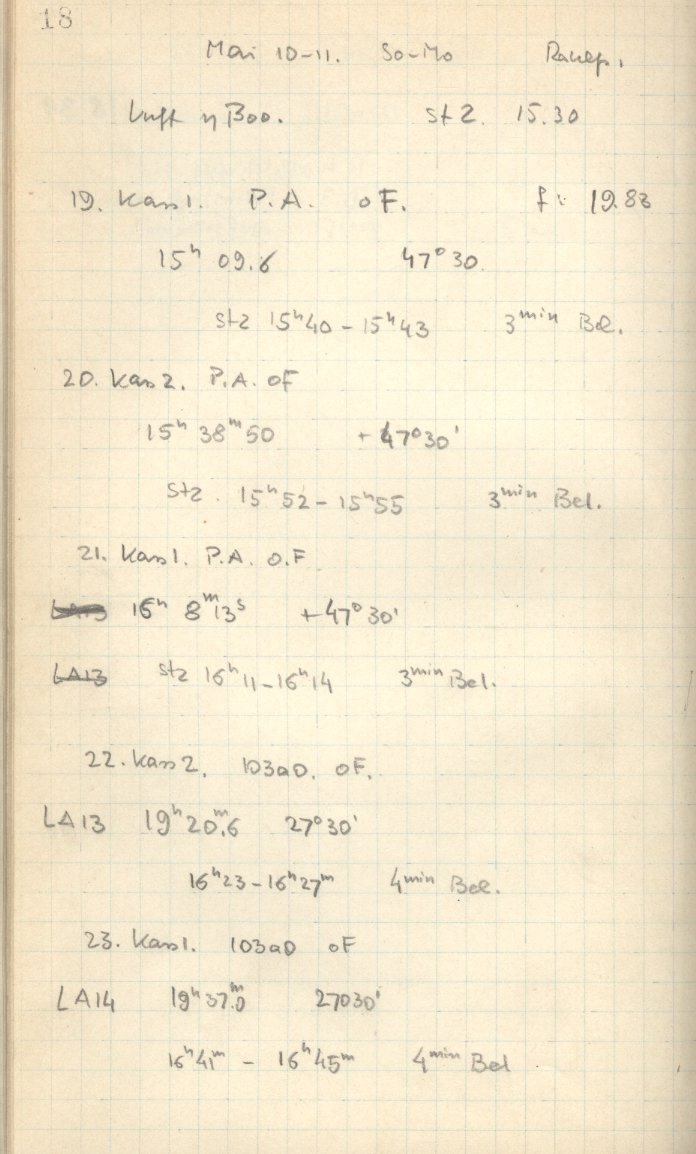 18
Mai 10-11. So-Mo
Luft η Boo. StZ. 15.30
19. Kass1. P.A. oF. f: 19.83
15ʰ 09.6 47°30.
StZ 15ʰ40 - 15ʰ43 3ᵐⁱⁿ Bel.
20. Kass2. P.A. oF
15ʰ 38ᵐ50 + 47°30'
StZ. 15ʰ52 - 15ʰ55 3ᵐⁱⁿ Bel.
21. Kass1. P.A. o.F
16ʰ 8ᵐ13ˢ +47°30'
LA13 StZ 16ʰ11 - 16ʰ14 3ᵐⁱⁿ Bel.
22. Kass2. 103aD. oF.
LA13 19ʰ20ᵐ.6 27°30'
16ʰ23 - 16ʰ27ᵐ 4ᵐⁱⁿ Bel.
23. Kass1. 103aD oF
LA14 19ʰ37ᵐ.0 27°30'
16ʰ41ᵐ - 16ʰ45ᵐ 4ᵐⁱⁿ Bel